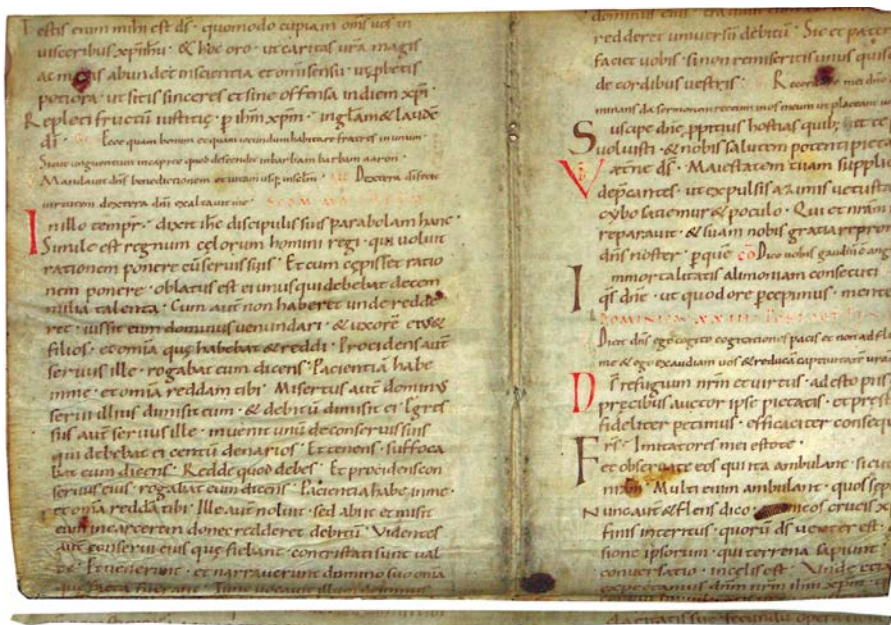 estis enim mihi est ds · quomodo cupiam oms uos in
uisceribus xpi ihu · & hoc oro · ut caritas ura magis
ac magis abundet in scientia et omi sensu · ut pbetis
potiora · ut sitis sinceres et sine offensa in diem xpi ·
Repleti fructu iustitię · p ihm xpm · in glam & laude
di · Ecce quam bonum et quam iocundum habitare fratres in unum ·
Sicut unguentum in capite quod descendit in barbam barbam aaron ·
Mandauit dns benedictionem et uitam usq; in sclm · Dextera di fecit
uirtutem dextera dni exaltauit me ·
In illo tempr · dixit ihc discipulis suis parabolam hanc
Simile est regnum cęlorum homini regi · qui uoluit
rationem ponere cu seruis suis · Et cum cępisset ratio
nem ponere · oblatus est ei unus qui debebat decem
milia talenta · Cum aut non haberet unde redde
ret · iussit eum dominus uenundari · & uxore ei &
filios · et omia quę habebat & reddi · Procidens aut
seruus ille · rogabat eum dicens · Pacientia habe
in me · et omia reddam tibi · Misertus aut dominus
serui illius dimisit eum · & debitu dimisit ei · Egres
sus aut seruus ille · inuenit unu de conseruis suis
qui debebat ei centu denarios · Et tenens · suffoca
bat eum dicens · Redde quod debes · Et procidens con
seruus eius · rogabat eum dicens · Pacientia habe in me ·
et omia redda tibi · Ille aut noluit · sed abiit et misit
eum in carcerem donec redderet debitu · Videntes
aut conserui eius quę fiebant · contristati sunt ual
de · Et uenerunt · et narrauerunt domino suo omia
quę facta fuerant · Tunc uocauit illum dominus
dominus eius
redderet uniuersu debitu · Sic et pater
faciet uobis · si non remiseritis unus quisq
de cordibus uestris · Recordare mei dne
minans da sermonem rectum in os meum ut placeant
Suscipe dne ppitius hostias quib; et te
uoluisti · & nobis salutem potenti pieta
Vaetne ds · Maiestatem tuam supplic
depcantes · ut expulsis azimis uetusta
cybo satiemur & poculo · Qui et nram
reparauit · & suam nobis gratia repron
dns noster · p que co Dico uobis gaudiu e ang
Immortalitatis alimoniam consecuti
qs dne · ut quod ore pcepimus · mente
DOMINICA XXIII
Dicit dns ego cogito cogitationes pacis et non adfl
me & ego exaudiam uos & reduca captiuitate uram
Ds refugium nrm et uirtus · adesto piis
pręcibus auctor ipse pietatis · et pręst
fideliter petimus · efficaciter conseq
Frs · Imitatores mei estote ·
et obseruate eos qui ita ambulant · sicut
nram · Multi enim ambulant · quos sep
Nunc aut & flens dico · inimicos crucis x
finis interitus · quoru ds uenter est ·
sione ipsorum · qui terrena sapiunt
conuersatio · in celis est · Unde etia
expectamus dnm nrm ihm xpm ·